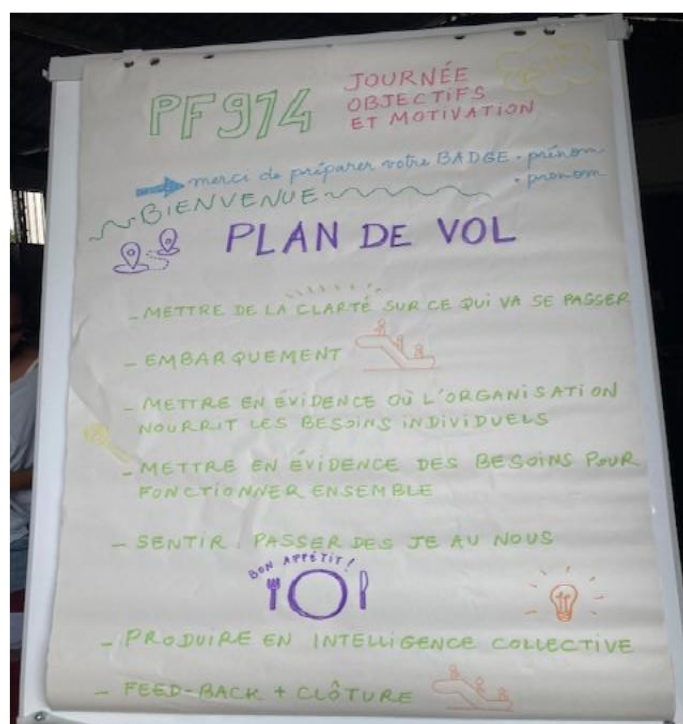 PF974
JOURNÉE
OBJECTIFS
ET MOTIVATION
merci de préparer votre BADGE • prénom
• pronom
BIENVENUE
PLAN DE VOL
- METTRE DE LA CLARTÉ SUR CE QUI VA SE PASSER
- EMBARQUEMENT
- METTRE EN ÉVIDENCE OÙ L'ORGANISATION
NOURRIT LES BESOINS INDIVIDUELS
- METTRE EN ÉVIDENCE DES BESOINS POUR
FONCTIONNER ENSEMBLE
- SENTIR : PASSER DES JE AU NOUS
BON APPÉTIT !
- PRODUIRE EN INTELLIGENCE COLLECTIVE
- FEED-BACK + CLÔTURE